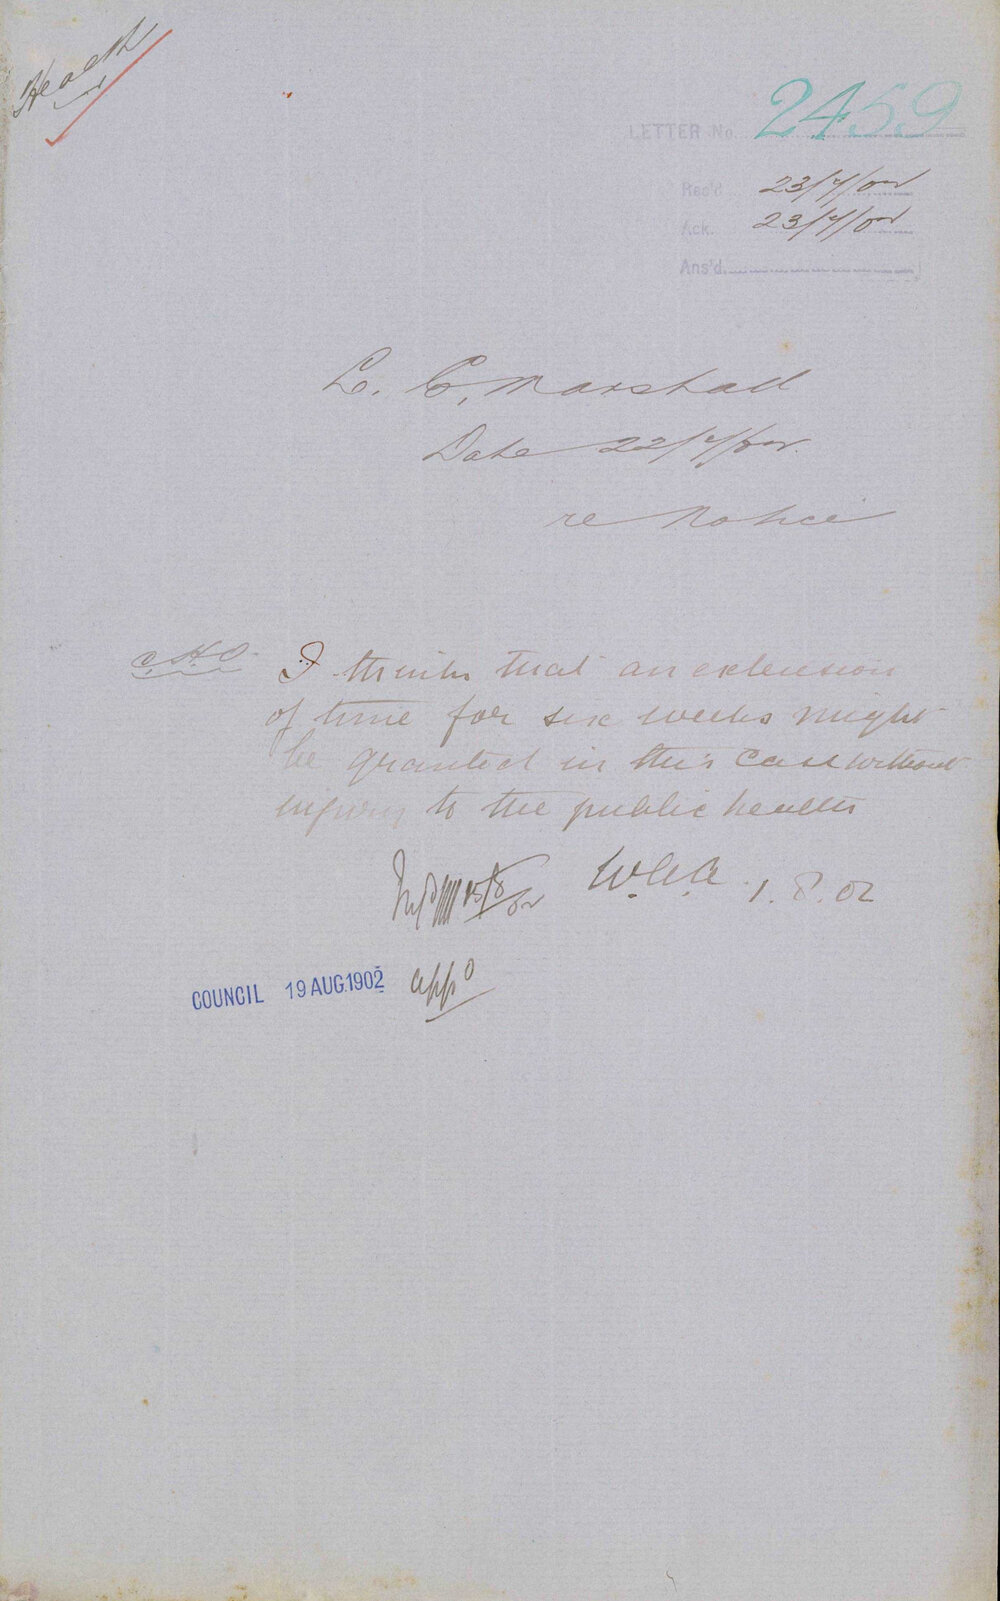 Health
LETTER No. 2459
Rec'd 23/7/02
Ack. 23/7/02
Ans'd.
L. C. Marshall
Date 22/7/02.
re Notice
C.H.O. I think that an extension
of time for six weeks might
be granted in this case without
injury to the public health
W.C.A. 1.8.02
15/8/02
COUNCIL 19 AUG. 1902 appd